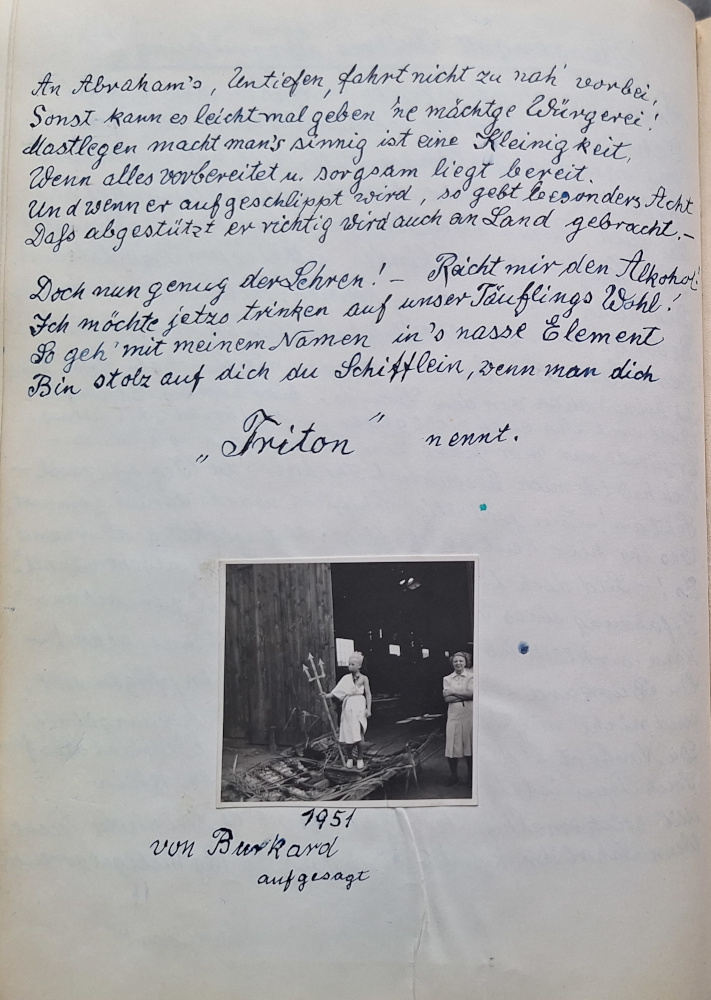 An Abraham's, Untiefen, fahrt nicht zu nah' vorbei,
Sonst kann es leicht mal geben 'ne mächtge Würgerei!
Mastlegen macht man's sinnig ist eine Kleinigkeit,
Wenn alles vorbereitet u. sorgsam liegt bereit.
Und wenn er aufgeschlippt wird, so gebt besonders Acht
Daſs abgestützt er richtig wird auch an Land gebracht.–
Doch nun genug der Lehren! – Reicht mir den Alkohol!
Ich möchte jetzo trinken auf unser Täuflings Wohl!
So geh' mit meinem Namen in's nasse Element
Bin stolz auf dich du Schifflein, wenn man dich
„Triton" nennt.
1951
von Burkard
aufgesagt